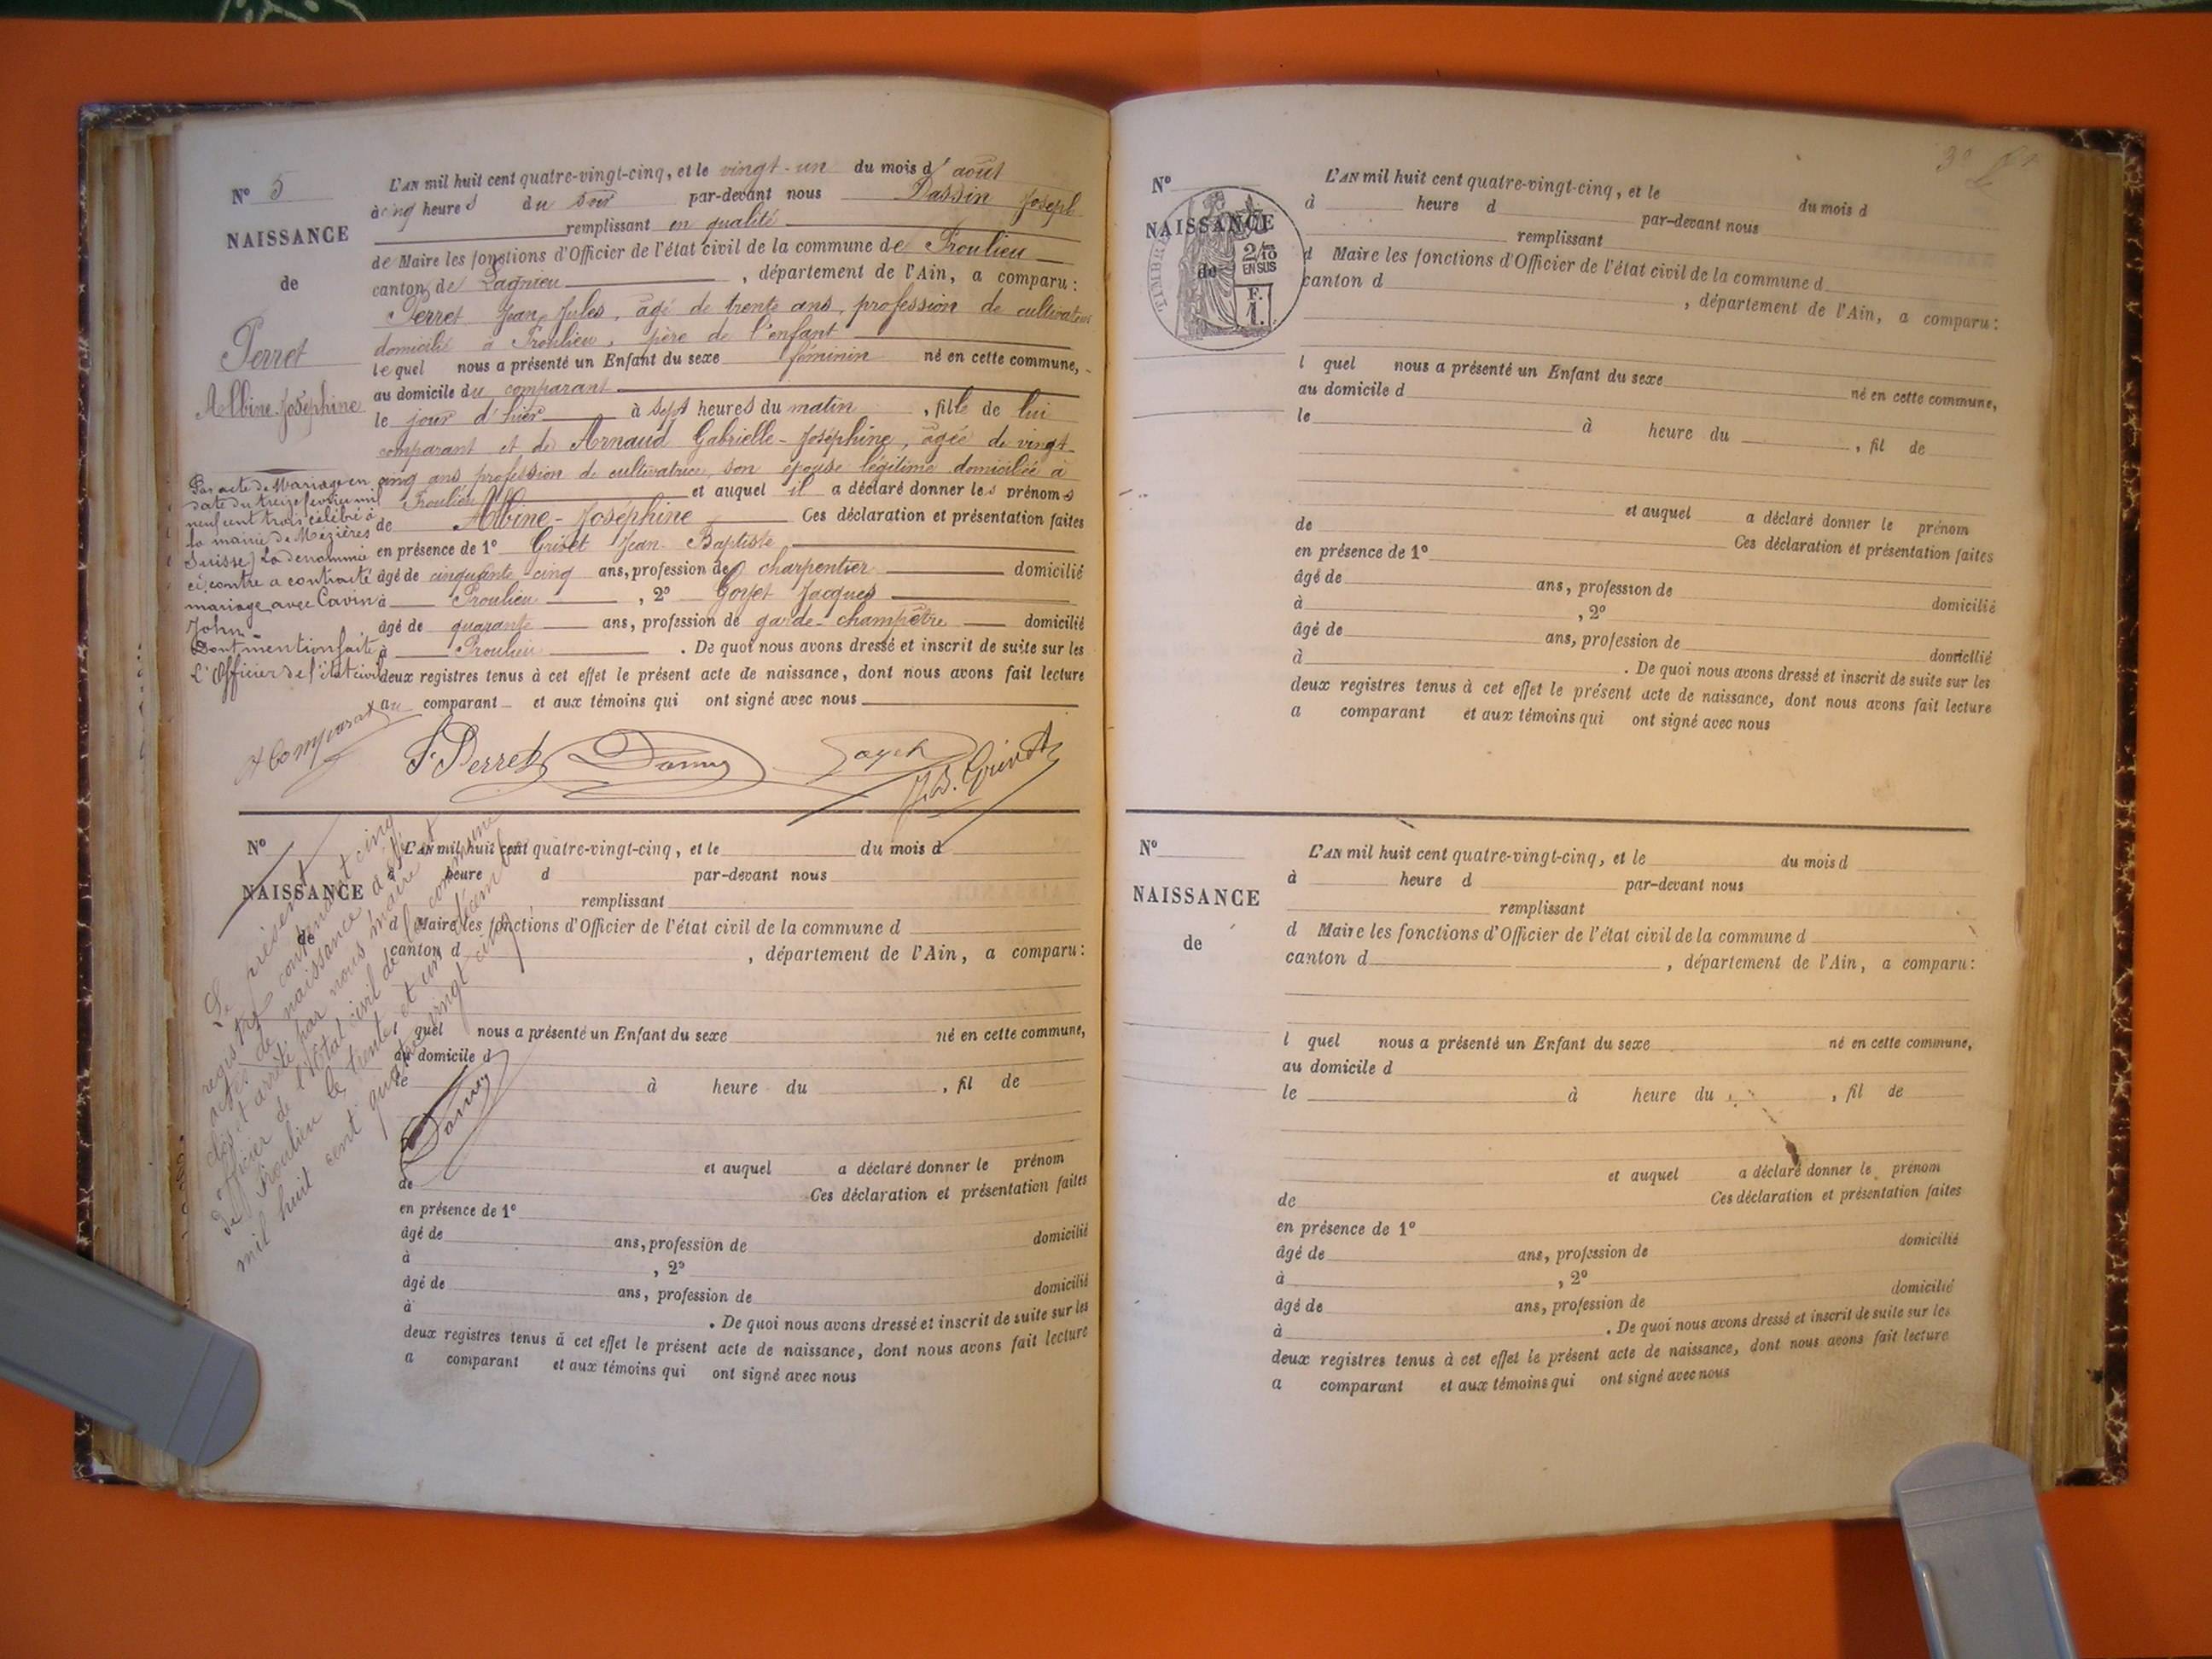 N° 5
NAISSANCE
de
Perret
Albine-Joséphine
L'AN mil huit cent quatre-vingt-cinq, et le vingt-un du mois d'août
à cinq heures du soir par-devant nous Joseph
remplissant en qualité
de Maire les fonctions d'Officier de l'état civil de la commune de Proulieu
canton de Lagnieu, département de l'Ain, a comparu:
Perret Jean Jules, âgé de trente ans, profession de cultivateur
domicilié à Proulieu, père de l'enfant
lequel nous a présenté un Enfant du sexe féminin né en cette commune,
au domicile du comparant
le jour d'hier à sept heures du matin, fille de lui
comparant et de Arnaud Gabrielle-Joséphine, âgée de vingt-
cinq ans profession de cultivatrice, son épouse légitime domiciliée à
Proulieu et auquel il a déclaré donner les prénoms
de Albine-Joséphine Ces déclaration et présentation faites
en présence de 1° Jean Baptiste
âgé de cinquante-cinq ans, profession de charpentier domicilié
à Proulieu, 2° Goyet Jacques
âgé de quarante ans, profession de garde-champêtre domicilié
à Proulieu. De quoi nous avons dressé et inscrit de suite sur les
deux registres tenus à cet effet le présent acte de naissance, dont nous avons fait lecture
au comparant et aux témoins qui ont signé avec nous
Par acte de Mariage en
date du treize février mil
neuf cent trois célébré à
la mairie de Mézières
Suisse) La dénommée
ci-contre a contracté
mariage avec Cavin
John
Dont mention faite
L'Officier de l'état civil
J. Perret
N°
NAISSANCE
de
L'AN mil huit cent quatre-vingt-cinq, et le du mois d
heure d par-devant nous
remplissant
d Maire les fonctions d'Officier de l'état civil de la commune d
canton d, département de l'Ain, a comparu:
l quel nous a présenté un Enfant du sexe né en cette commune,
au domicile d
le à heure du, fil de
et auquel a déclaré donner le prénom
de Ces déclaration et présentation faites
en présence de 1°
âgé de ans, profession de domicilié
à, 2°
âgé de ans, profession de domicilié
à. De quoi nous avons dressé et inscrit de suite sur les
deux registres tenus à cet effet le présent acte de naissance, dont nous avons fait lecture
a comparant et aux témoins qui ont signé avec nous
Le présent
registre contenant cinq
actes de naissance a été
clos et arrêté par nous maire et
officier de l'état civil de la commune
de Proulieu le trente et un décembre
mil huit cent quatre vingt cinq
N°
NAISSANCE
de
TIMBRE
2/10
EN SUS
F.
1.
L'AN mil huit cent quatre-vingt-cinq, et le du mois d
à heure d par-devant nous
remplissant
d Maire les fonctions d'Officier de l'état civil de la commune d
canton d, département de l'Ain, a comparu:
l quel nous a présenté un Enfant du sexe né en cette commune,
au domicile d
le à heure du, fil de
et auquel a déclaré donner le prénom
de Ces déclaration et présentation faites
en présence de 1°
âgé de ans, profession de domicilié
à, 2°
âgé de ans, profession de domicilié
à. De quoi nous avons dressé et inscrit de suite sur les
deux registres tenus à cet effet le présent acte de naissance, dont nous avons fait lecture
a comparant et aux témoins qui ont signé avec nous
N°
NAISSANCE
de
L'AN mil huit cent quatre-vingt-cinq, et le du mois d
à heure d par-devant nous
remplissant
d Maire les fonctions d'Officier de l'état civil de la commune d
canton d, département de l'Ain, a comparu:
l quel nous a présenté un Enfant du sexe né en cette commune,
au domicile d
le à heure du, fil de
et auquel a déclaré donner le prénom
de Ces déclaration et présentation faites
en présence de 1°
âgé de ans, profession de domicilié
à, 2°
âgé de ans, profession de domicilié
à. De quoi nous avons dressé et inscrit de suite sur les
deux registres tenus à cet effet le présent acte de naissance, dont nous avons fait lecture
a comparant et aux témoins qui ont signé avec nous